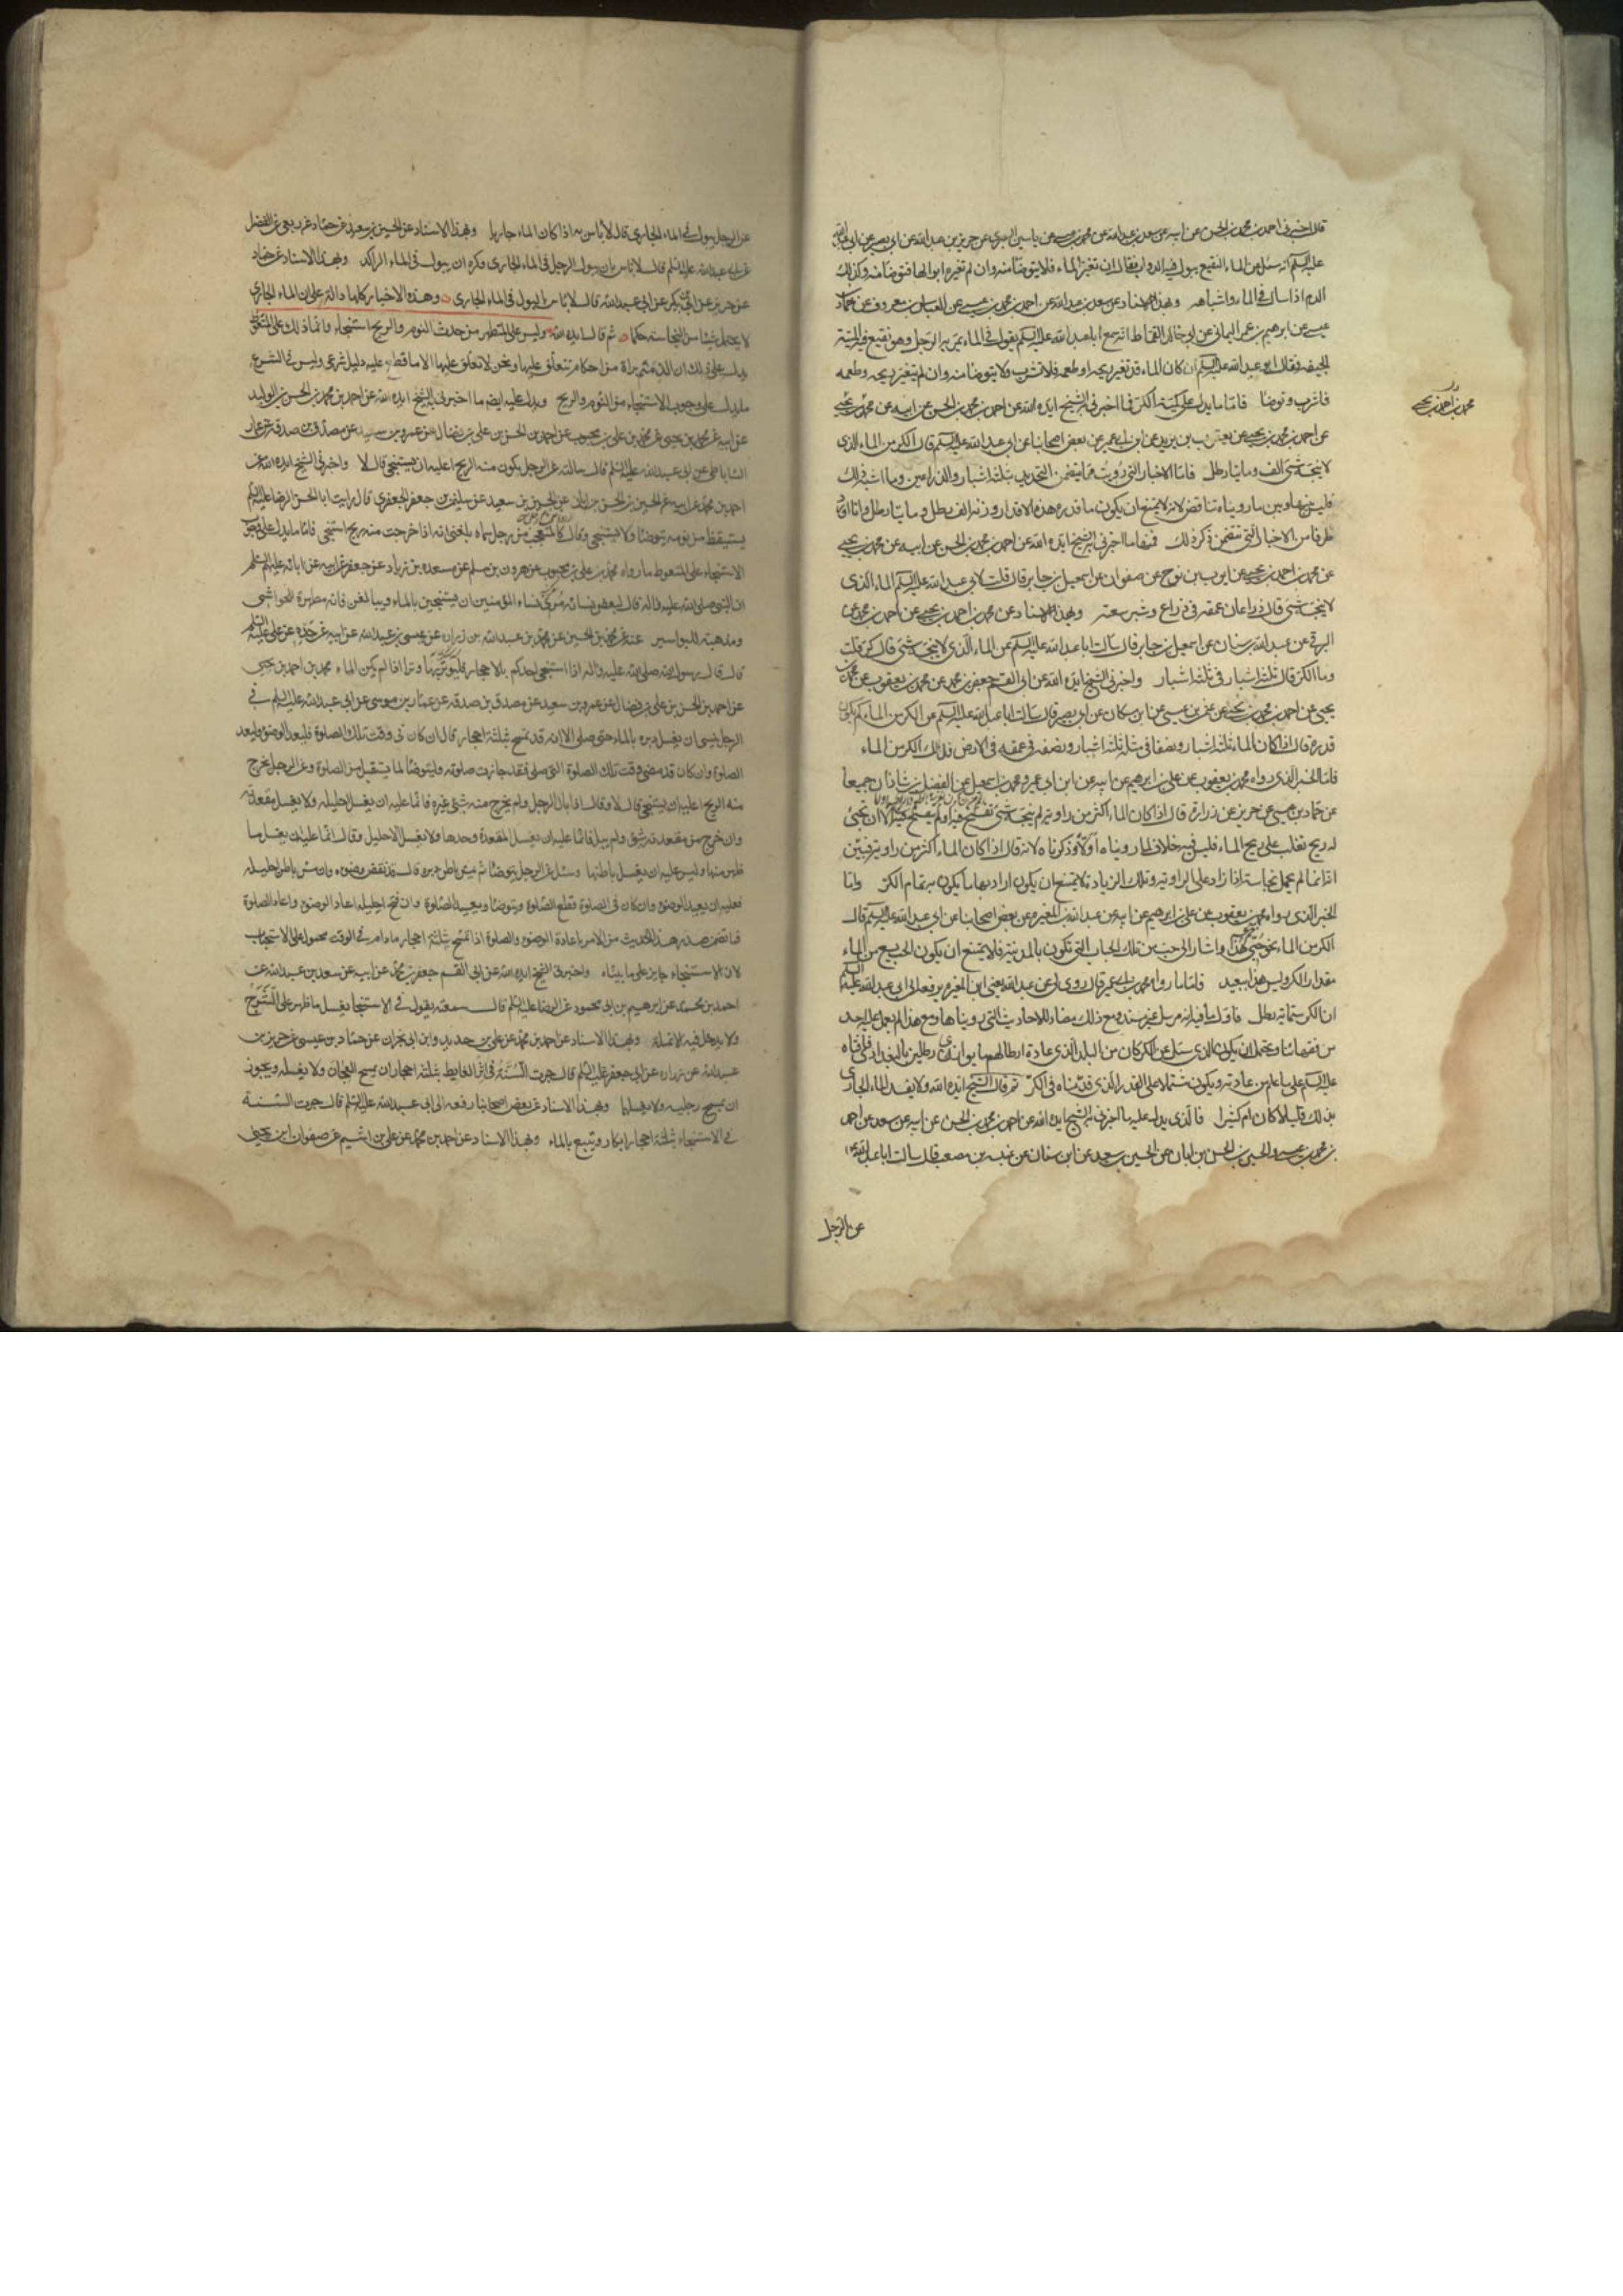 قال اخبرني احمد بن محمد بن الحسن عن ابيه عن سعد بن عبد الله عن محمد بن عيسى عن ياسين البصري عن حريز بن عبد الله عن ابي بصير عن ابي عبد الله
عليه السلم انه سئل عن الماء النقيع يبول فيه الدواب فقال ان تغير الماء فلا يتوضأ منه وان لم تغيره ابوالها فتوضأ منه وكذلك
الدم اذا سال في الماء واشباهه وبهذا الاسناد عن سعد بن عبد الله عن احمد بن محمد بن عيسى عن العباس بن معروف عن حماد بن
عيسى عن ابرهيم بن عمر اليماني عن ابي خالد القماط انه سمع ابا عبد الله عليه السلم يقول في الماء يمر به الرجل وهو نقيع فيه الميتة
الجيفة فقال ابو عبد الله عليه السلم ان كان الماء قد تغير ريحه او طعمه فلا تشرب ولا يتوضأ منه وان لم يتغير ريحه وطعمه
فاشرب وتوضأ فاما ما يدل على كمية الكر فما اخبرني به الشيخ ايده الله عن احمد بن محمد بن الحسن عن ابيه عن محمد بن يحيى
محمد بن احمد بن يحيى
عن احمد بن محمد بن يحيى عن يعقوب بن يزيد عن ابن ابي عمير عن بعض اصحابنا عن ابي عبد الله عليه السلم قال الكر من الماء الذي
لا ينجسه شئ الف ومايتا رطل فاما الاخبار التي رويت مما يتضمن التحديد بثلثة اشبار والذراعين وما اشبه ذلك
فليس بينها وبين ما رويناه تناقض لانه لا يمتنع ان يكون ما قدره هذه الاقدار وزنه الف رطل ومايتا رطل وانا اورد
طرفا من الاخبار التي تتضمن ذكر ذلك فمنها ما اخبرني به الشيخ ايده الله عن احمد بن محمد بن الحسن عن ابيه عن محمد بن يحيى
عن محمد بن احمد بن يحيى عن ايوب بن نوح عن صفوان عن اسمعيل بن جابر قال قلت لابي عبد الله عليه السلم الماء الذي
لا ينجسه شئ قال ذراعان عمقه في ذراع وشبر سعته وبهذا الاسناد عن محمد بن احمد بن يحيى عن احمد بن محمد عن
البرقي عن عبد الله بن سنان عن اسمعيل بن جابر قال سالت ابا عبد الله عليه السلم عن الماء الذي لا ينجسه شئ قال كر قلت
وما الكر قال ثلثة اشبار في ثلثة اشبار واخبرني الشيخ ايده الله عن ابي القسم جعفر بن محمد عن محمد بن يعقوب عن محمد بن
يحيى عن احمد بن محمد بن يحيى عن عثمن بن عيسى عن ابن مسكان عن ابي بصير قال سالت ابا عبد الله عليه السلم عن الكر من الماء كم يكون
قدره قال اذا كان الماء ثلثة اشبار ونصفا في مثله ثلثة اشبار ونصف في عمقه في الارض فذلك الكر من الماء
فاما الخبر الذي رواه محمد بن يعقوب عن علي بن ابرهيم عن ابيه عن ابن ابي عمير ومحمد بن اسمعيل عن الفضل بن شاذان جميعا
عن حماد بن عيسى عن حريز عن زرارة قال اذا كان الماء اكثر من راوية لم ينجسه شئ تفسخ فيه او لم يتفسخ فيه الا ان تجئ
له ريح تغلب على ريح الماء فليس فيه خلاف لما رويناه اولا وذكرناه لانه قال اذا كان الماء اكثر من راوية فبين
انه انما لم يحمل نجاسة اذا زاد على الراوية وتلك الزيادة لا يمتنع ان يكون اراد بها ما يكون به تمام الكر واما
الخبر الذي رواه محمد بن يعقوب عن علي بن ابرهيم عن ابيه عن عبد الله بن المغيرة عن بعض اصحابنا عن ابي عبد الله عليه السلم قال
الكر من الماء نحو حبي هذا واشار الى حب من تلك الحباب التي تكون بالمدينة فلا يمتنع ان يكون الحب يسع من الماء
مقدار الكر وليس هذا ببعيد فاما ما رواه محمد بن ابي عمير قال روي لي عن عبد الله يعني ابن المغيرة يرفعه الى ابي عبد الله عليه السلم
ان الكر ستماية رطل فاول ما فيه انه مرسل غير مسند ومع ذلك مضاد للاحاديث التي رويناها ومع هذا لم يعمل عليه احد
من فقهائنا ويحتمل ان يكون الذي سئل عن الكر كان من البلد الذي عادة ارطالهم ما يوازي رطلين بالبغدادي فافتاه
عليه السلم على ما علم من عادته ويكون مشتملا على القدر الذي قدمناه في الكر ثم قال الشيخ ايده الله ولا يفسد الماء الجاري
بذلك قليلا كان ام كثيرا فالذي يدل عليه ما اخبرني به الشيخ ايده الله عن احمد بن محمد بن الحسن عن ابيه عن سعد عن احمد
بن محمد بن عيسى والحسين بن الحسن بن ابان عن الحسين بن سعيد عن ابن سنان عن عنبسة بن مصعب قال سالت ابا عبد الله ع
عن الرجل
عن الرجل يبول في الماء الجاري قال لا باس به اذا كان الماء جاريا وبهذا الاسناد عن الحسين بن سعيد عن حماد عن ربعي عن الفضيل
عن ابي عبد الله عليه السلم قال لا باس بان يبول الرجل في الماء الجاري وكره ان يبول في الماء الراكد وبهذا الاسناد عن حماد
عن حريز عن ابن بكير عن ابي عبد الله قال لا باس بالبول في الماء الجاري وهذه الاخبار كلها دالة على ان الماء الجاري
لا يحتمل شيئا من النجاسة حكما ثم قال ايده الله وليس على المتطهر من حدث النوم والريح استنجاء وانما ذلك على المتغوط
يدل على ذلك ان الذمة براة من احكام تتعلق عليها ونحن لا نعلق عليها الا ما قطع عليه دليل شرعي وليس في الشرع
ما يدل على وجوب الاستنجاء من النوم والريح ويدل عليه ايضا ما اخبرني به الشيخ ايده الله عن احمد بن محمد بن الحسن بن الوليد
عن ابيه عن محمد بن يحيى عن محمد بن علي بن محبوب عن احمد بن الحسن بن علي بن فضال عن عمرو بن سعيد عن مصدق بن صدقة عن عمار
الساباطي عن ابي عبد الله عليه السلم قال سالته عن الرجل يكون منه الريح اعليه ان يستنجي قال لا واخبرني الشيخ ايده الله عن
احمد بن محمد عن ابيه عن الحسين بن الحسن بن ابان عن الحسين بن سعيد عن سليمن بن جعفر الجعفري قال رايت ابا الحسن الرضا عليه السلم
يستيقظ من نومه يتوضأ ولا يستنجي وقال كالمتعجب من رجل سماه بلغني انه اذا خرجت منه ريح استنجى فاما ما يدل على وجوب
الاستنجاء على المتغوط ما رواه محمد بن علي بن محبوب عن هرون بن مسلم عن مسعدة بن زياد عن جعفر عن ابيه عن ابائه عليهم السلم
ان النبي صلى الله عليه واله قال لبعض نسائه مري نساء المؤمنين ان يستنجين بالماء ويبالغن فانه مطهرة للحواشي
ومذهبة للبواسير عنه عن محمد بن الحسين عن محمد بن عبد الله بن زرارة عن عيسى بن عبد الله عن ابيه عن جده عن علي عليه السلم
قال قال رسول الله صلى الله عليه واله اذا استنجى احدكم بالاحجار فليوتر بها وترا اذا لم يكن الماء محمد بن احمد بن يحيى
عن احمد بن الحسن بن علي بن فضال عن عمرو بن سعيد عن مصدق بن صدقة عن عمار بن موسى عن ابي عبد الله عليه السلم في
الرجل ينسى ان يغسل دبره بالماء حتى صلى الا انه قد تمسح بثلثة احجار قال ان كان في وقت تلك الصلوة فليعد الوضوء وليعد
الصلوة وان كان قد مضى وقت تلك الصلوة التي صلى فقد جازت صلوته وليتوضأ لما يستقبل من الصلوة وعن الرجل يخرج
منه الريح اعليه ان يستنجي قال لا وقال اذا بال الرجل ولم يخرج منه شئ غيره فانما عليه ان يغسل احليله ولا يغسل مقعدته
وان خرج من مقعدته شئ ولم يبل فانما عليه ان يغسل المقعدة وحدها ولا يغسل الاحليل وقال انما عليه ان يغسل ما
ظهر منها وليس عليه ان يغسل باطنها وسئل عن الرجل يتوضأ ثم يمس باطن دبره قال قد نقض وضوءه وان مس باطن احليله
فعليه ان يعيد الوضوء وان كان في الصلوة قطع الصلوة ويتوضأ ويعيد الصلوة وان فتح احليله اعاد الوضوء واعاد الصلوة
فما تضمن صدر هذا الحديث من الامر باعادة الوضوء والصلوة اذا تمسح بثلثة احجار ما دام في الوقت محمول على الاستحباب
لان الاستنجاء جايز على ما بيناه واخبرني الشيخ ايده الله عن ابي القسم جعفر بن محمد عن ابيه عن سعد بن عبد الله عن
احمد بن محمد عن ابرهيم بن ابي محمود عن الرضا عليه السلم قال سمعته يقول في الاستنجا يغسل ما ظهر على الشرج
ولا يدخل فيه الانملة وبهذا الاسناد عن احمد بن محمد عن علي بن حديد وابن ابي نجران عن حماد بن عيسى عن حريز بن
عبد الله عن زرارة عن ابي جعفر عليه السلم قال جرت السنة في اثر الغايط بثلثة احجار ان يمسح العجان ولا يغسله ويجوز
ان يمسح رجليه ولا يغسلهما وبهذا الاسناد عن بعض اصحابنا رفعه الى ابي عبد الله عليه السلم قال جرت السنة
في الاستنجاء بثلثة احجار ابكار ويتبع بالماء وبهذا الاسناد عن احمد بن محمد عن علي بن اشيم عن صفوان ابن يحيى